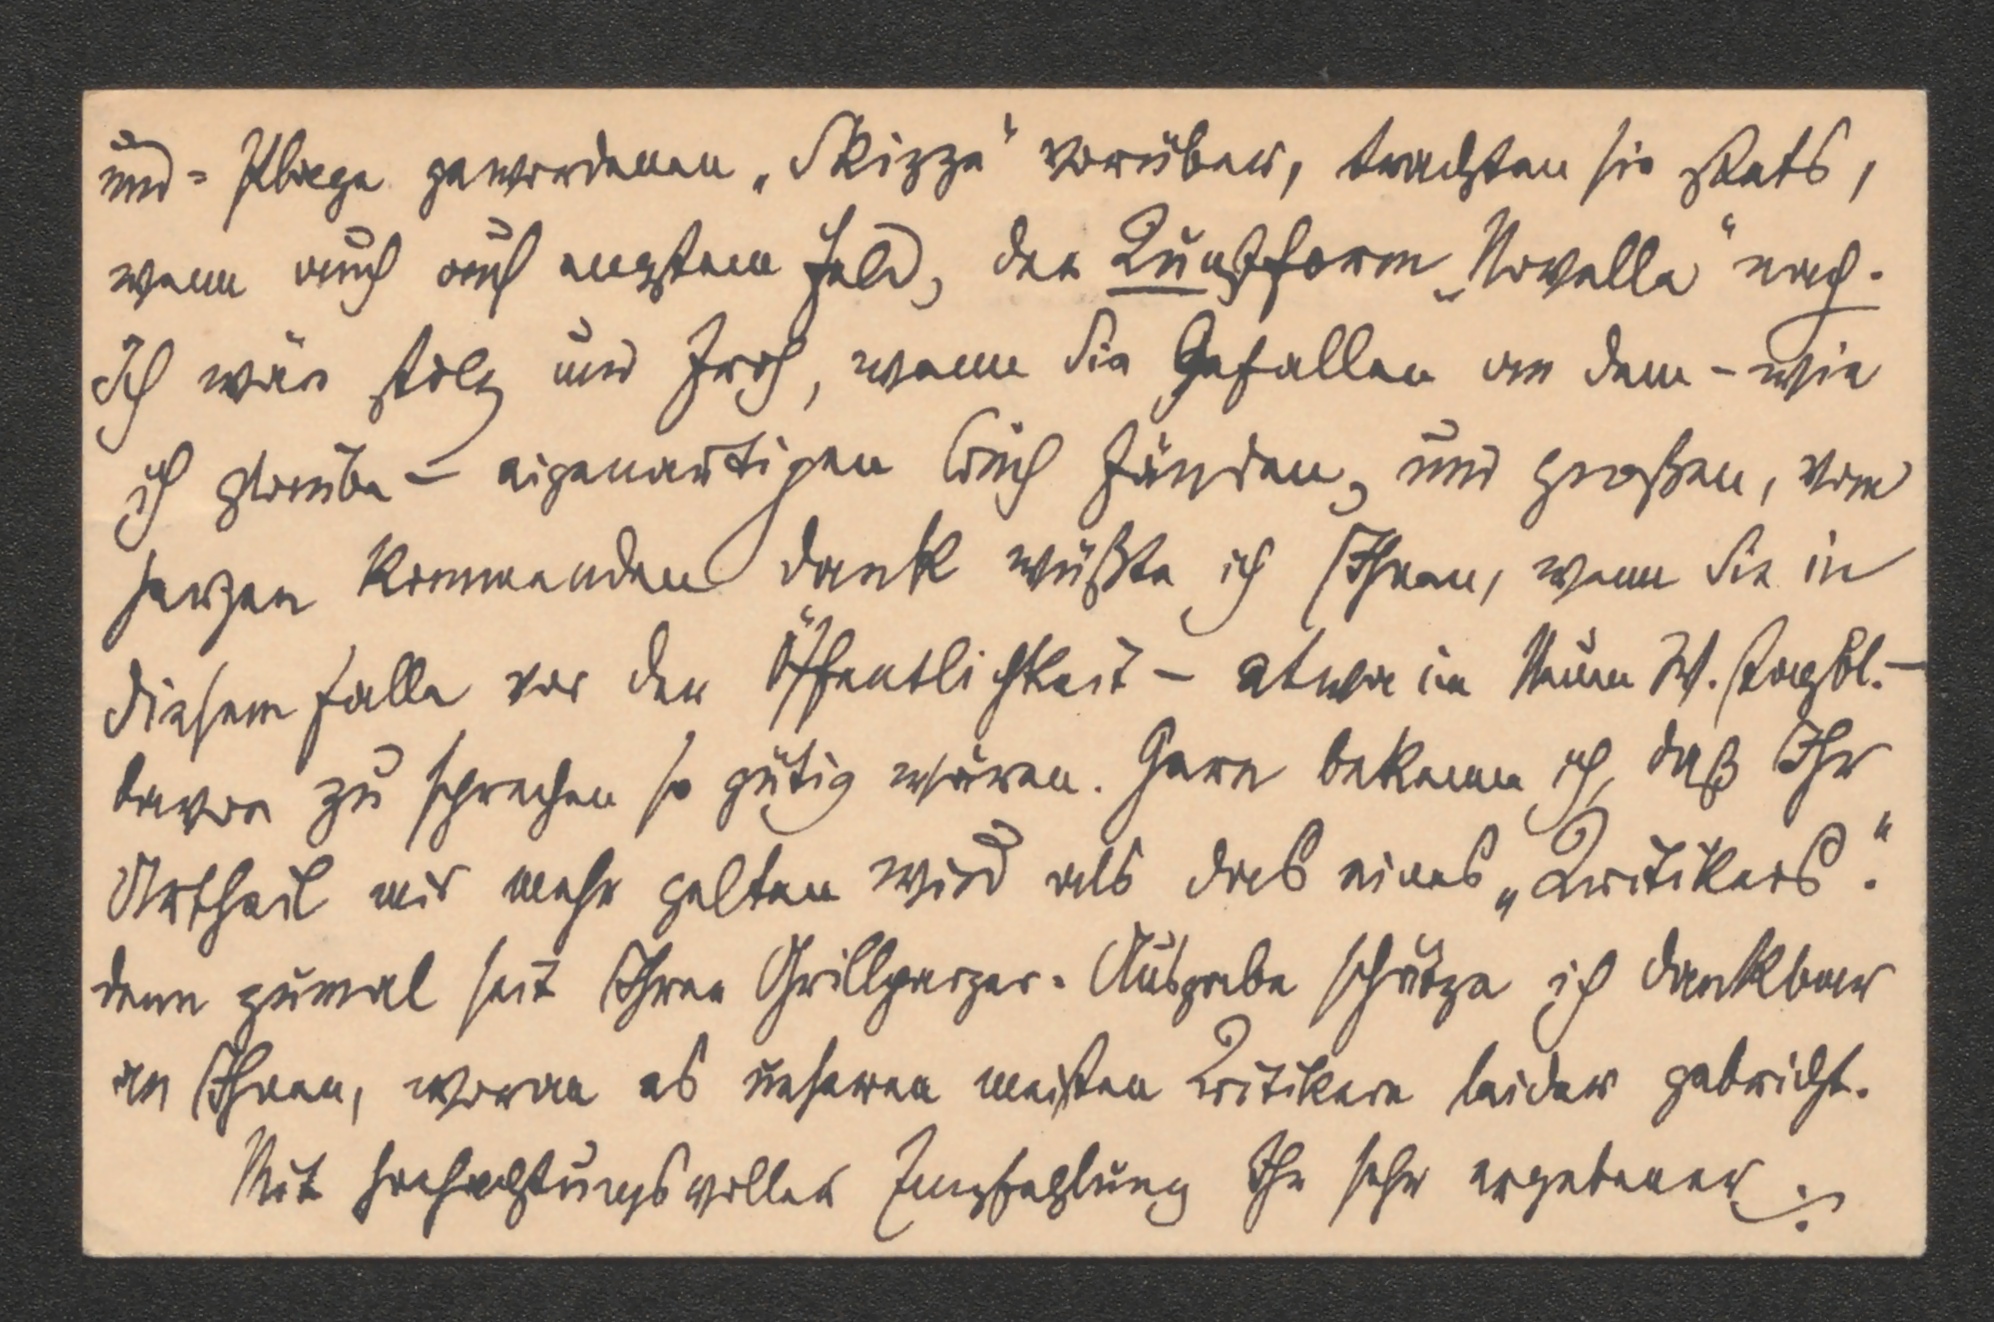 und = Plage gewordenen „Skizze“ vorüber, trachten sie stets,
wenn auch auf engstem Feld, der Kunstform „Novelle“ nach.
Ich wär stolz und froh, wenn Sie Gefallen an dem – wie
ich glaube – eigenartigen Buch fänden, und großen, vom
Herzen kommenden Dank wüßte ich Ihnen, wenn Sie in
diesem Falle vor der Öffentlichkeit – etwa im Neuen W. Tagbl. –
davon zu sprechen so gütig wären. Gern bekenn ich, daß Ihr
Urtheil mir mehr gelten wird als das eines „Kritikers“.
denn zumal seit Ihrer Grillparzer-Ausgabe schätze ich dankbar
an Ihnen, woran es unseren meisten Kritikern leider gebricht.
Mit hochachtungsvoller Empfehlung Ihr sehr ergebener